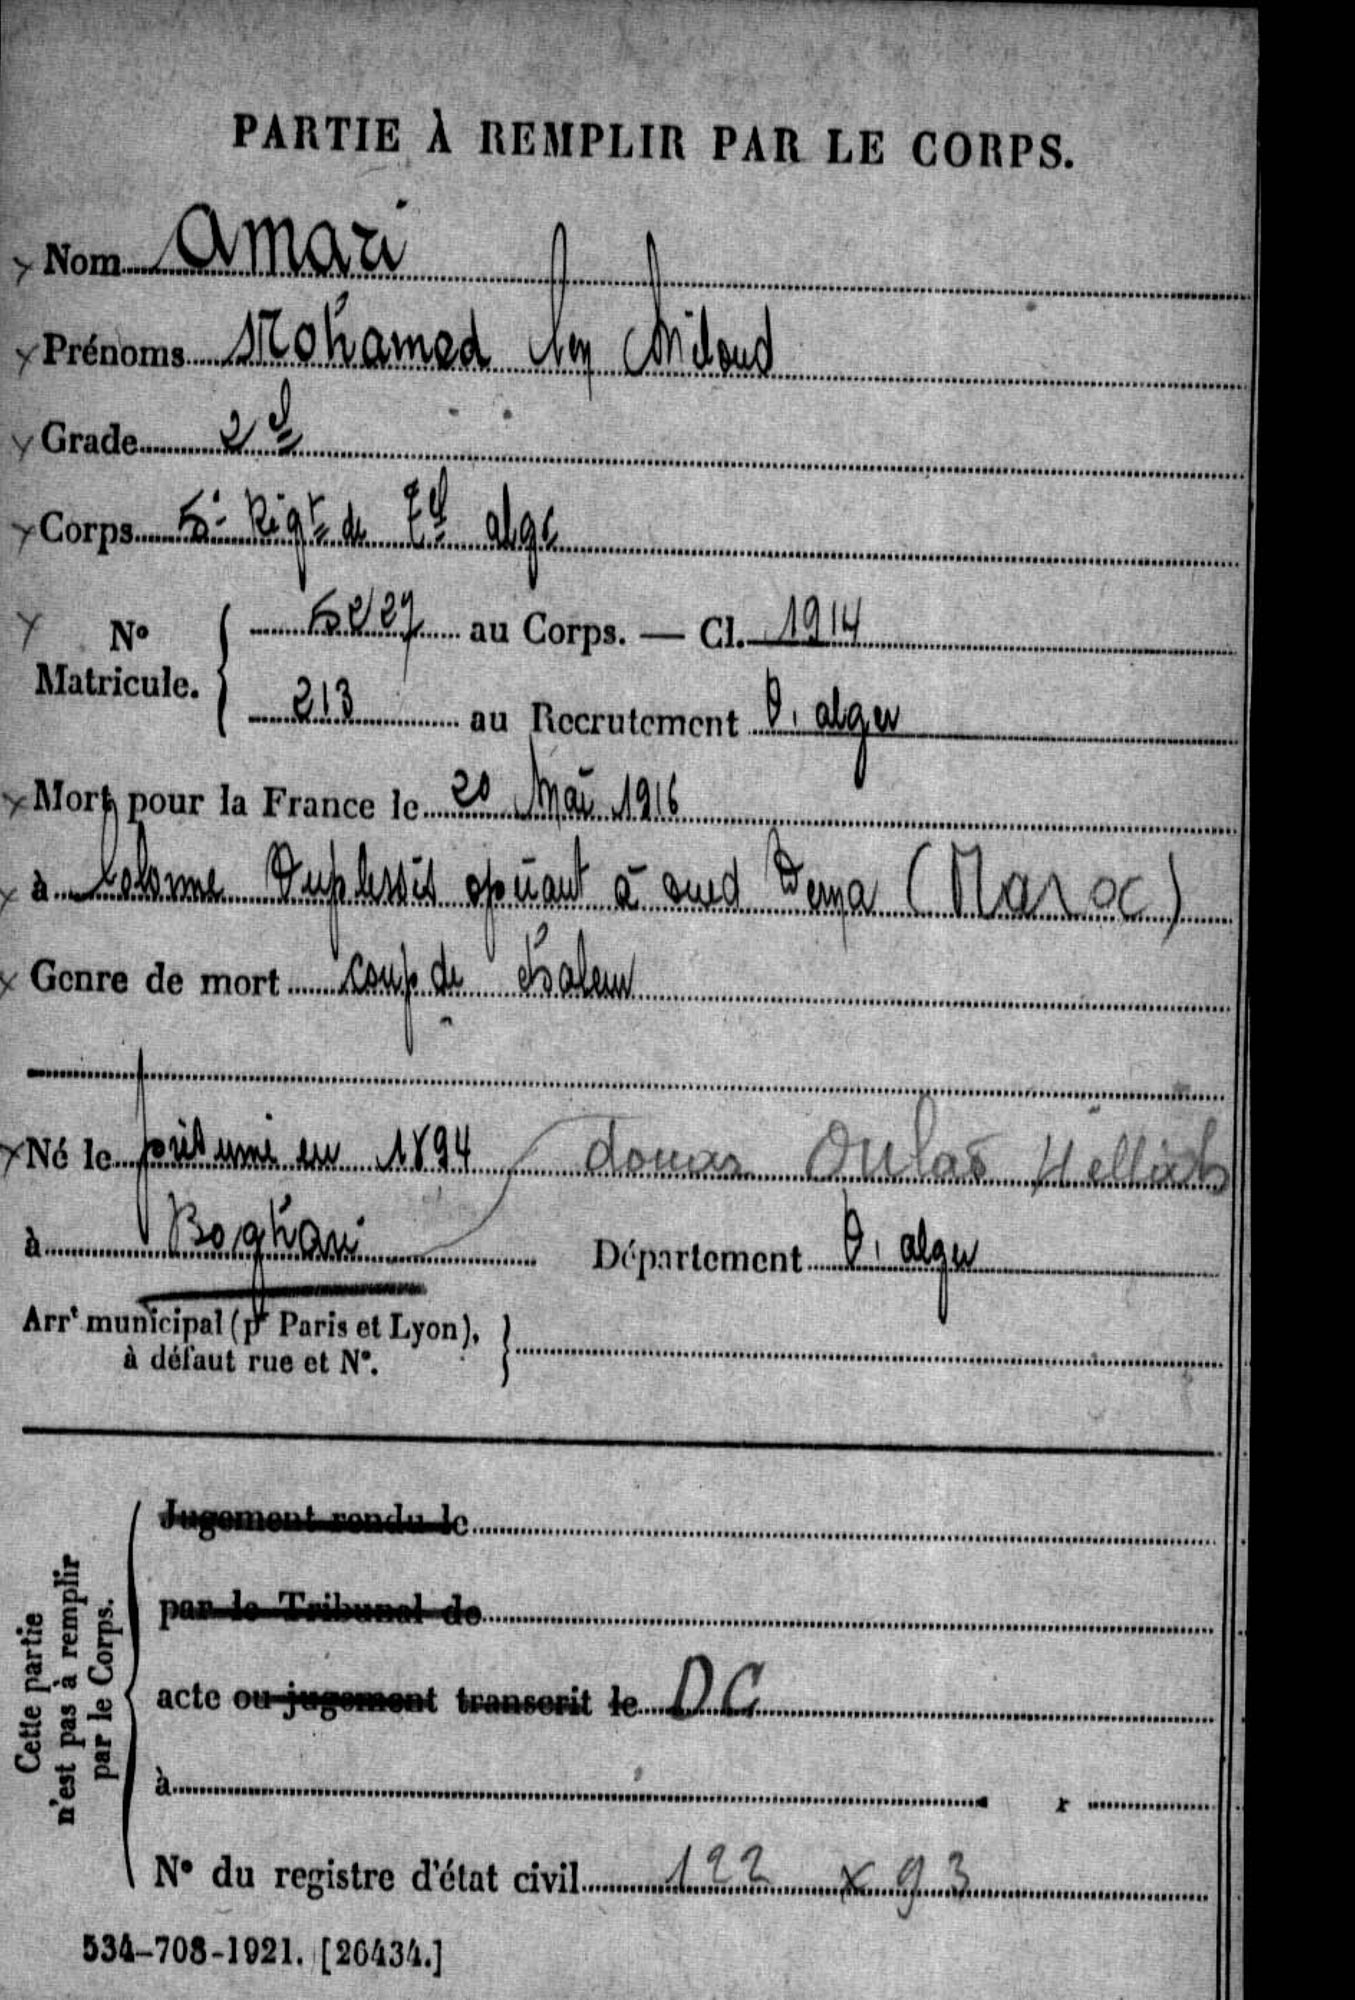 PARTIE À REMPLIR PAR LE CORPS.
Nom Amari
Prénoms Mohamed ben Miloud
Grade 2e
Corps 5e Régt de Tel alge
N° Matricule. 5227 au Corps. — Cl. 1914
213 au Recrutement D. alger
Mort pour la France le 20 Mai 1916
à Colonne Duplessis opérant à oued Derna (Maroc)
Genre de mort coup de chaleur
Né le présumé en 1894 douar Oulad Hellial
à Boghari Département D. alger
Arrt municipal (pr Paris et Lyon), à défaut rue et N°.
Cette partie n'est pas à remplir par le Corps.
Jugement rendu le
par le Tribunal de
acte ou jugement transcrit le DC
à
N° du registre d'état civil 122 x 93
534-708-1921. [26434.]